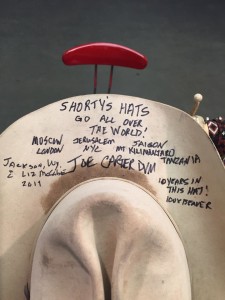 SHORTY'S HATS
GO ALL OVER
THE WORLD!
MOSCOW JERUSALEM SAIGON
LONDON NYC MT KILIMANJARO
TANZANIA
JACKSON, WY JOE CARTER DVM
& LIZ
2017
10 YEARS IN
THIS HAT!
100X BEAVER